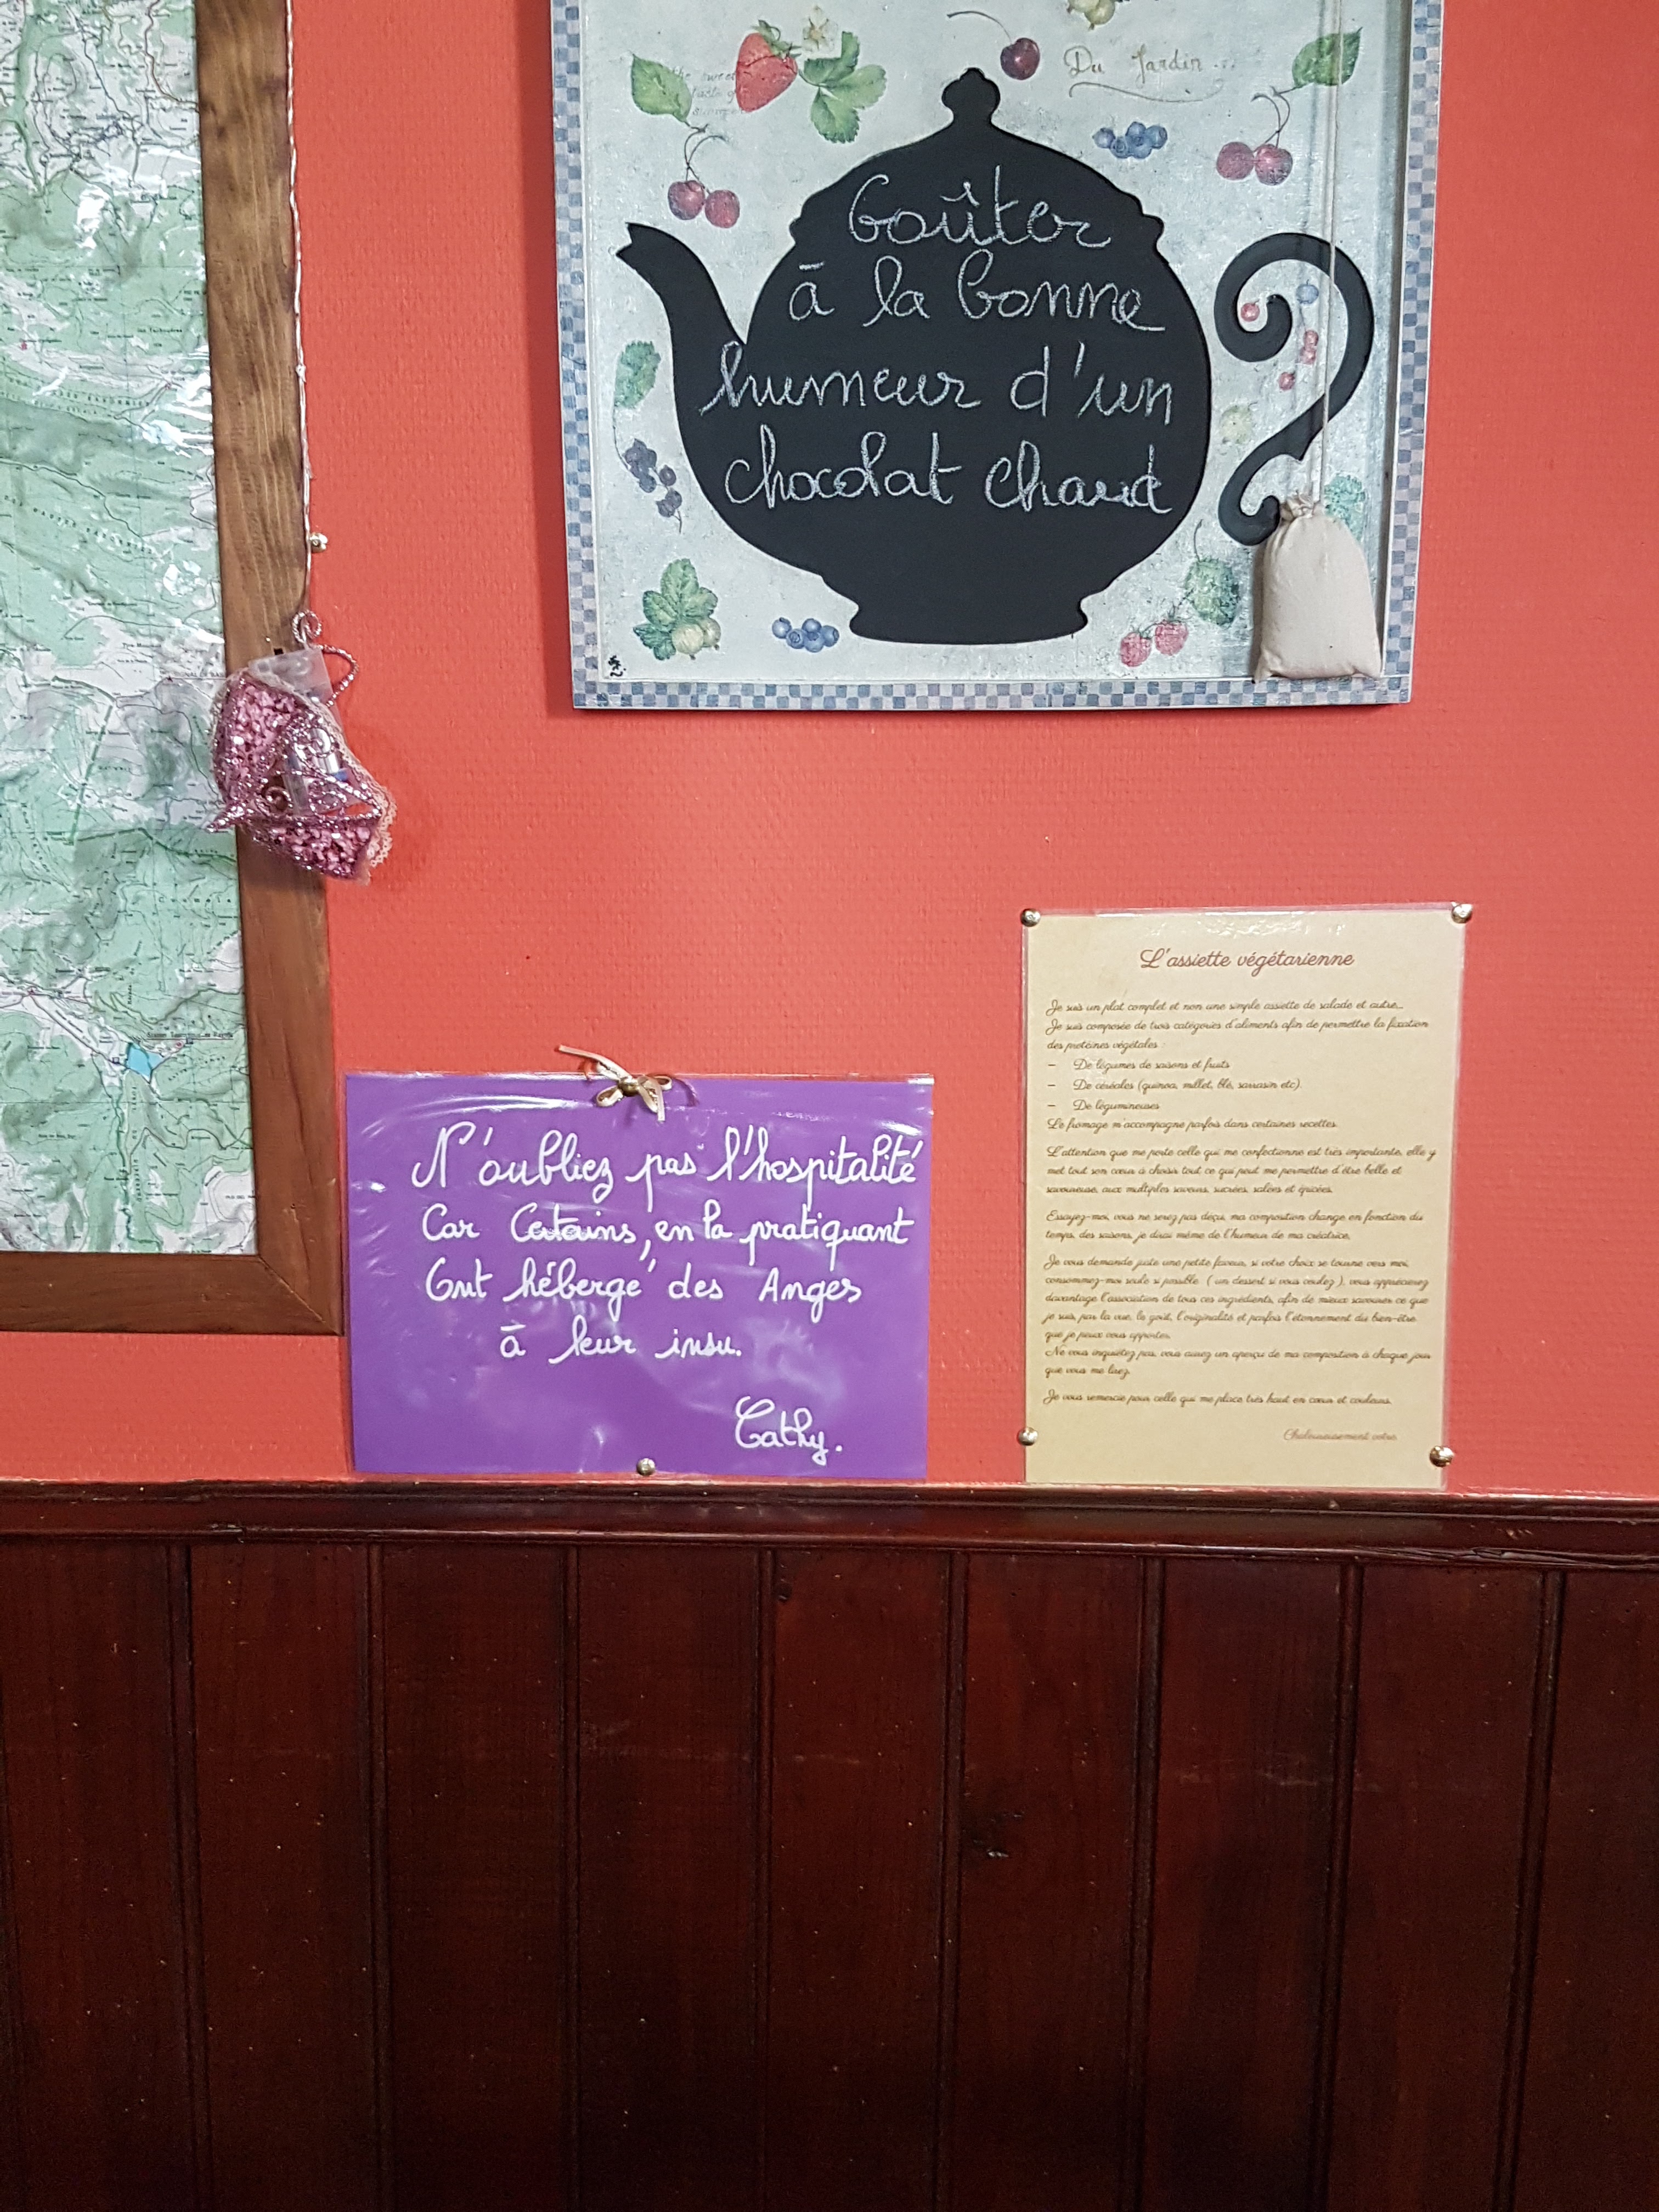 Du Jardin
Goûter
à la bonne
humeur d'un
chocolat chaud
N'oubliez pas l'hospitalité
Car Certains, en la pratiquant
Ont hébergé des Anges
à leur insu.
Cathy.
L'assiette végétarienne
Je suis un plat complet et non une simple assiette de salade et autre...
Je suis composée de trois catégories d'aliments afin de permettre la fixation
des protéines végétales :
– De légumes de saisons et fruits
– De céréales (quinoa, millet, blé, sarrasin etc)
– De légumineuses
Le fromage m'accompagne parfois dans certaines recettes.
L'attention que me porte celle qui me confectionne est très importante, elle y
met tout son cœur à choisir tout ce qui peut me permettre d'être belle et
savoureuse, aux multiples saveurs, sucrées, salées et épicées.
Essayez-moi, vous ne serez pas déçu, ma composition change en fonction du
temps, des saisons, je dirai même de l'humeur de ma créatrice.
Je vous demande juste une petite faveur, si votre choix se tourne vers moi,
consommez-moi seule si possible ( un dessert si vous voulez ), vous apprécierez
davantage l'association de tous ces ingrédients, afin de mieux savourer ce que
je suis, par la vue, le goût, l'originalité et parfois l'étonnement du bien-être
que je peux vous apporter.
Ne vous inquiétez pas, vous aurez un aperçu de ma composition à chaque jour
que vous me lirez.
Je vous remercie pour celle qui me place très haut en cœur et couleurs.
Chaleureusement votre